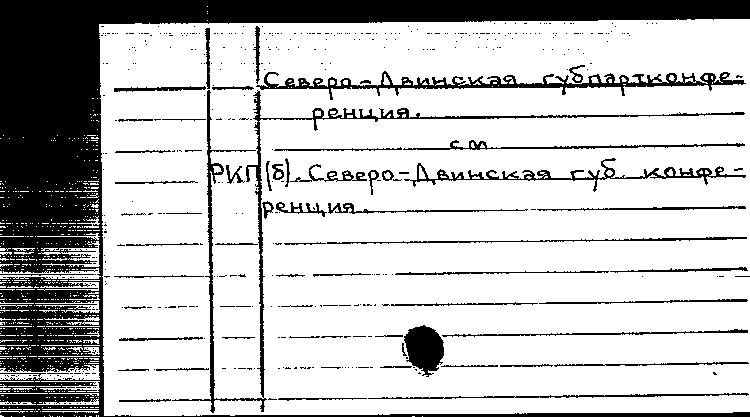 Северо-Двинская губпартконфе-
ренция.
см
РКП(б). Северо-Двинская губ. конфе-
ренция.